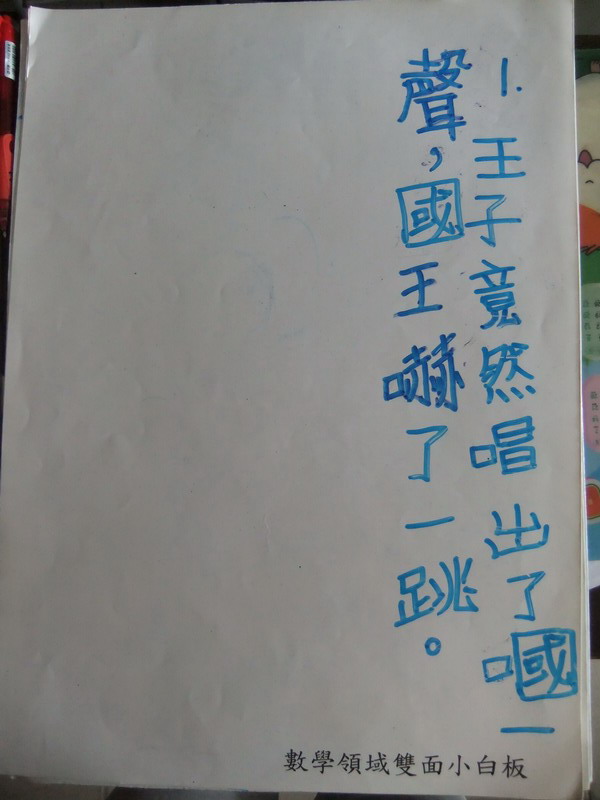 1.王子竟然唱出了嘓一
聲,國王嚇了一跳。
數學領域雙面小白板